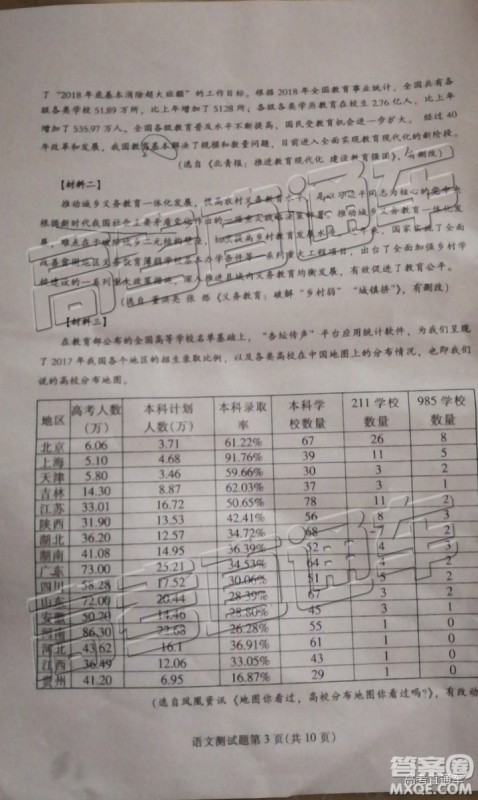 了“2018年底基本消除超大班额”的工作目标。根据2018年全国教育事业统计，全国共有各
级各类学校51.89万所，比上年增加了5128所；各级各类学历教育在校生2.76亿人，比上年
增加了535.97万人。全国各级教育普及水平不断提高，国民受教育机会进一步扩大。 经过40
年改革和发展，我国教育基本解决了规模和数量问题，目前进入全面实现教育现代化的新阶段。
（选自《北青报：推进教育现代化 建设教育强国》，有删改）
【材料二】
推动城乡义务教育一体化发展，
根据新时代我国社会主要矛盾 推动城乡义务教育一体化发
展，难点在于破除城乡二元结构
改善贫困地区义务教育薄弱学校基本办学条件等一系列重大工程项目，出台了全面加强乡村学
校建设的一系列重大政策措施，深入推进县域内义务教育均衡发展，有效促进了教育公平。
《义务教育：破解“乡村弱”“城镇挤”》，有删改）
【材料三】
在教育部公布的全国高等学校名单基础上，“杏坛传声”平台应用统计软件，为我们呈现
了2017年我国各个地区的招生录取比例，以及各类高校在中国地图上的分布情况，也即我们
说的高校分布地图。
地区 高考人数（万） 本科计划人数（万） 本科录取率 本科学校数量 211学校数量 985学校数量
北京 6.06 3.71 61.22% 67 26 8
上海 5.10 4.68 91.76% 39 11 5
天津 5.80 3.46 59.66% 30 3 2
吉林 14.30 8.87 62.03% 37 3 1
江苏 33.01 16.72 50.65% 78 11 2
陕西 31.90 13.53 42.41% 56 8 3
湖北 36.20 12.57 34.72% 68 7 2
湖南 41.08 14.95 36.39% 52 4 3
广东 73.00 25.21 34.53% 64 4 2
四川 58.28 17.52 30.06% 51 5 2
山东 72.00 20.44 28.39% 67 3 2
安徽 50.20 14.46 28.80% 45 3 1
河南 86.30 22.68 26.28% 55 1 0
河北 43.62 16.1 36.91% 61 1 0
江西 36.49 12.06 33.05% 43 1 0
贵州 41.20 6.95 16.87% 29 1 0
（选自凤凰资讯《地图你看过，高校分布地图你看过吗？》，有改动
语文测试题第3页（共10页）
高考直通车
高考直通车
答案圈
MXQE.COM